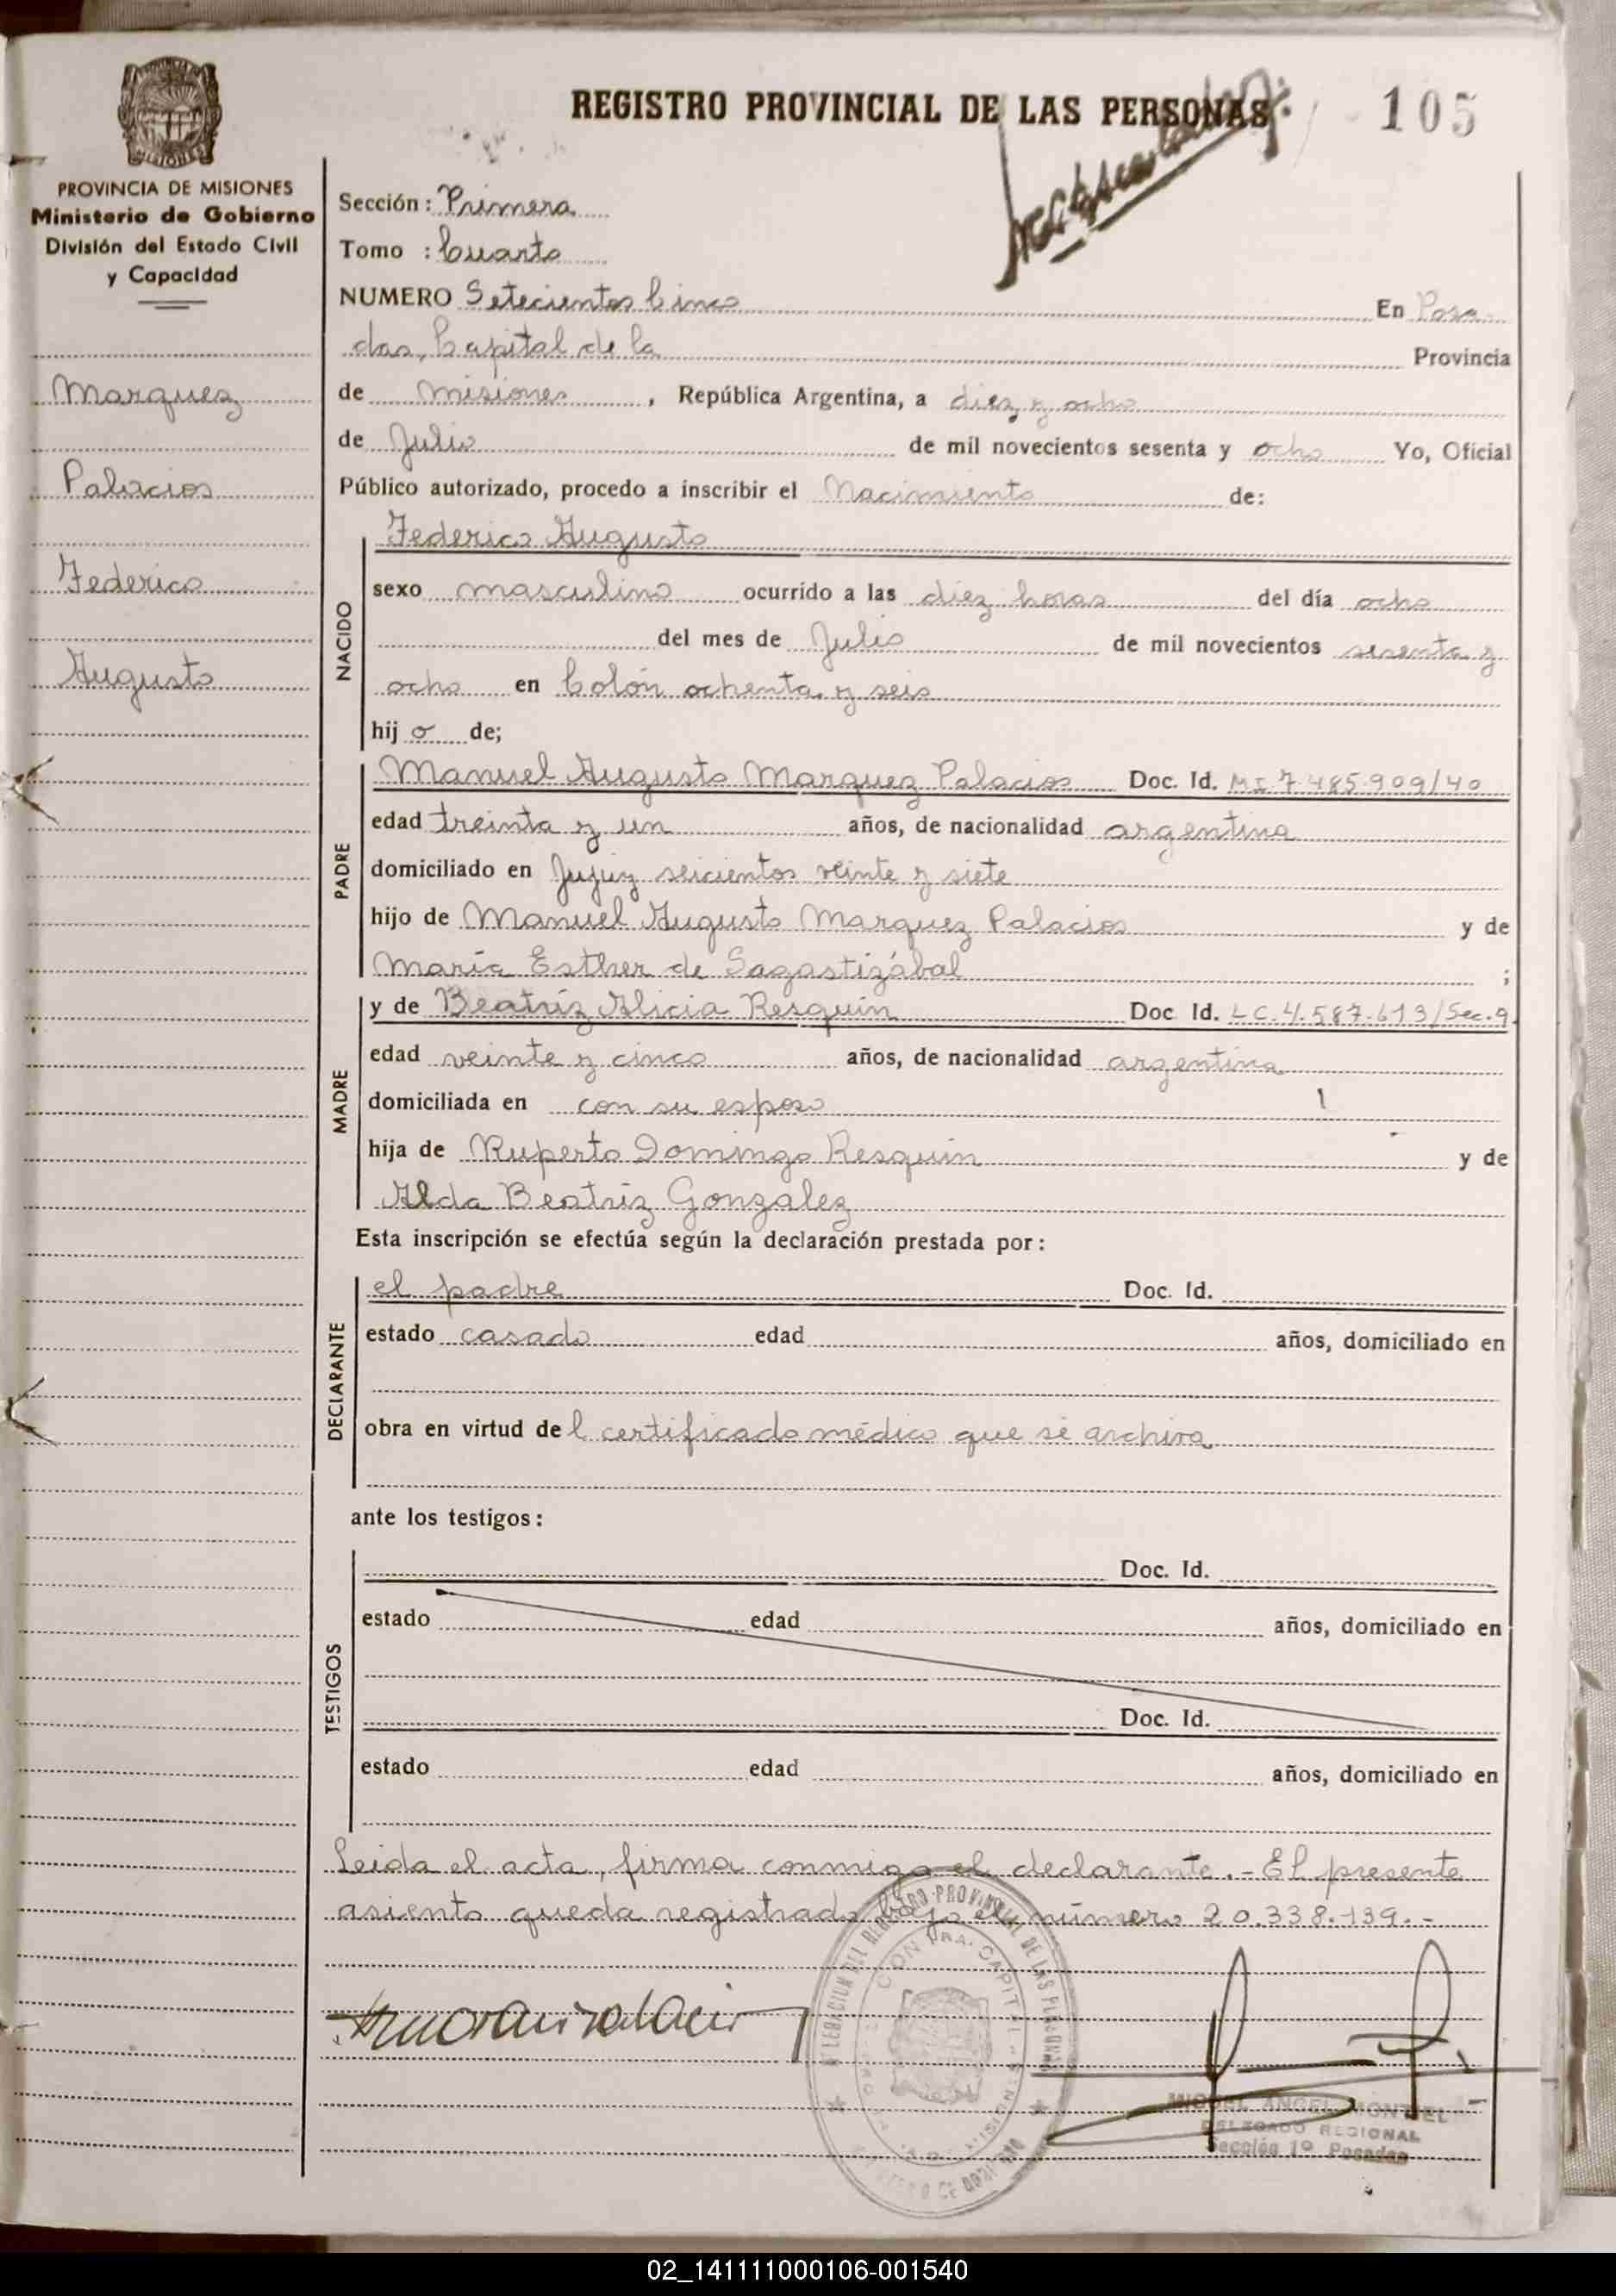 REGISTRO PROVINCIAL DE LAS PERSONAS
105
PROVINCIA DE MISIONES
Ministerio de Gobierno
División del Estado Civil
y Capacidad
Marquez
Palacios
Federico
Augusto
Sección: Primera
Tomo : Cuarto
NUMERO Setecientos Cinco En Posa
das, Capital de la Provincia
de misiones, República Argentina, a diez y ocho
de Julio de mil novecientos sesenta y ocho Yo, Oficial
Público autorizado, procedo a inscribir el Nacimiento de:
NACIDO
Federico Augusto
sexo masculino ocurrido a las diez horas del día ocho
del mes de Julio de mil novecientos sesenta y
ocho en Colón ochenta y seis
hijo de;
PADRE
Manuel Augusto Marquez Palacios Doc. Id. MI 7.485.909/40
edad treinta y un años, de nacionalidad argentina
domiciliado en Jujuy seicientos veinte y siete
hijo de Manuel Augusto Marquez Palacios y de
María Esther de Sagastizábal ;
MADRE
y de Beatríz Alicia Resquín Doc. Id. LC.4.587.613/Sec.9
edad veinte y cinco años, de nacionalidad argentina
domiciliada en con su esposo
hija de Ruperto Domingo Resquín y de
Alda Beatríz Gonzalez
Esta inscripción se efectúa según la declaración prestada por:
DECLARANTE
el padre Doc. Id.
estado casado edad años, domiciliado en
obra en virtud del certificado médico que se archiva
ante los testigos:
TESTIGOS
Doc. Id.
estado edad años, domiciliado en
Doc. Id.
estado edad años, domiciliado en
Leida el acta, firma conmigo el declarante.- El presente
asiento queda registrado bajo el número 20.338.139.-
MIGUEL ANGEL MONTIEL
DELEGADO REGIONAL
Sección 1º Posadas
02_141111000106-001540